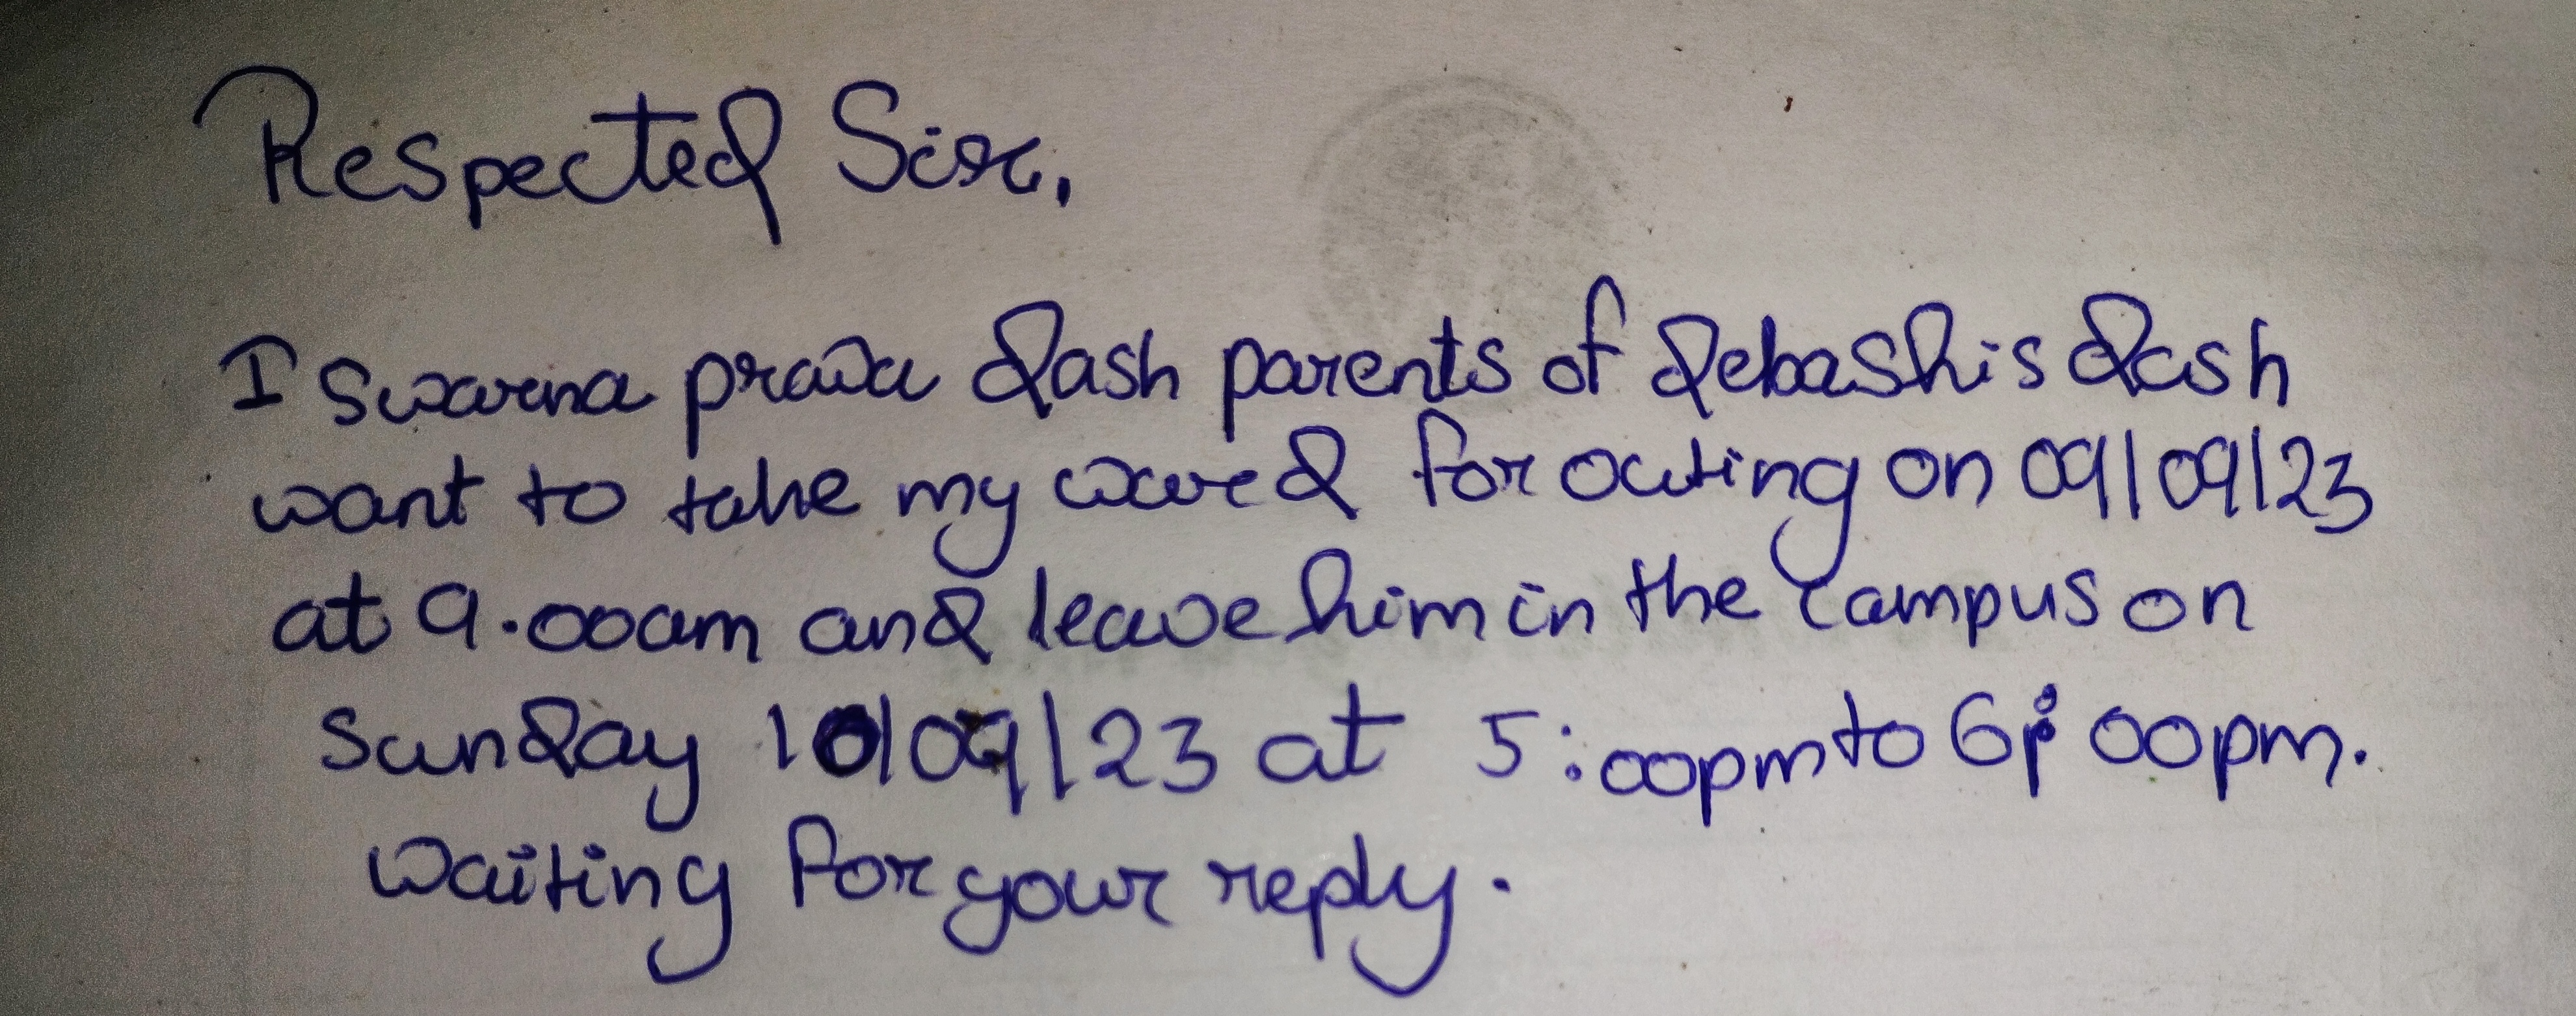 Respected Sir,
I Swarna prava dash parents of debashis dash
want to take my ward for outing on 09/09/23
at 9.00am and leave him in the campus on
Sunday 10/09/23 at 5:00pm to 6:00pm.
Waiting for your reply.